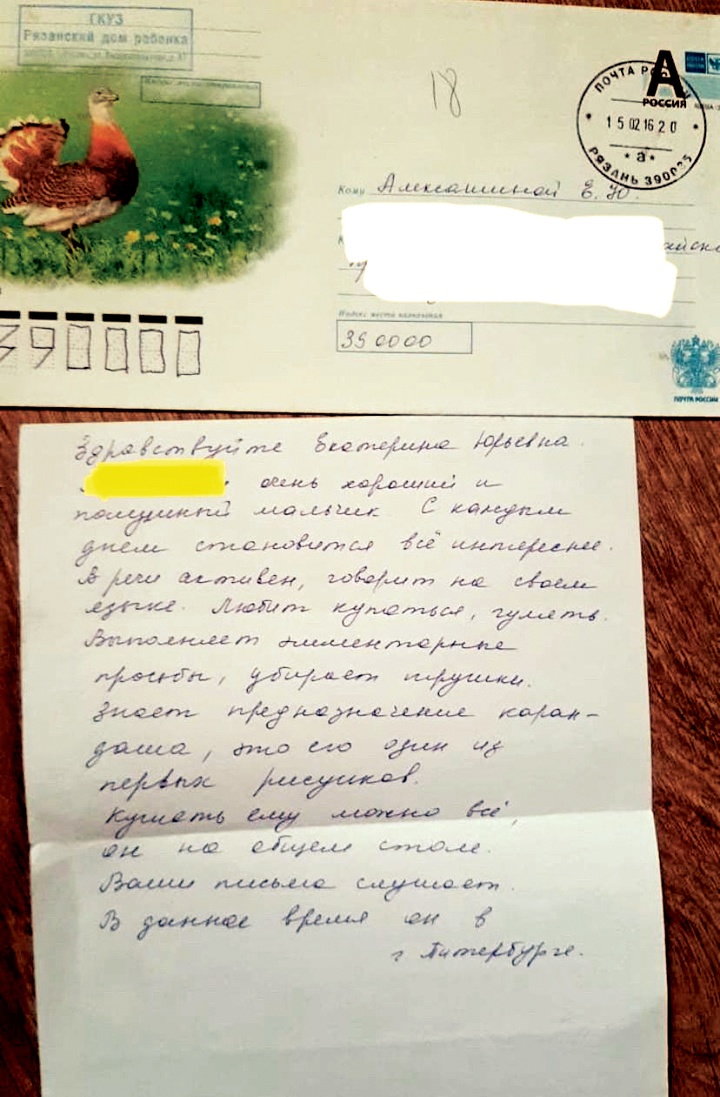 ГКУЗ
Рязанский дом ребенка
18
ПОЧТА РОССИИ
А
РОССИЯ
15 02 16 20
а
РЯЗАНЬ 390025
Кому Алексашиной Е. Ю.
Индекс места назначения
390000
390000
ПОЧТА РОССИИ
Здравствуйте Екатерина Юрьевна.
очень хороший и
послушный мальчик С каждым
днём становится всё интереснее.
В речи активен, говорит на своем
языке. Любит купаться, гулять.
Выполняет элементарные
просьбы, убирает игрушки.
Знает предназначение каран-
даша, это его один из
первых рисунков.
Кушать ему можно всё,
он на общем столе.
Ваши письма слушает.
В данное время он в
г Питербурге.